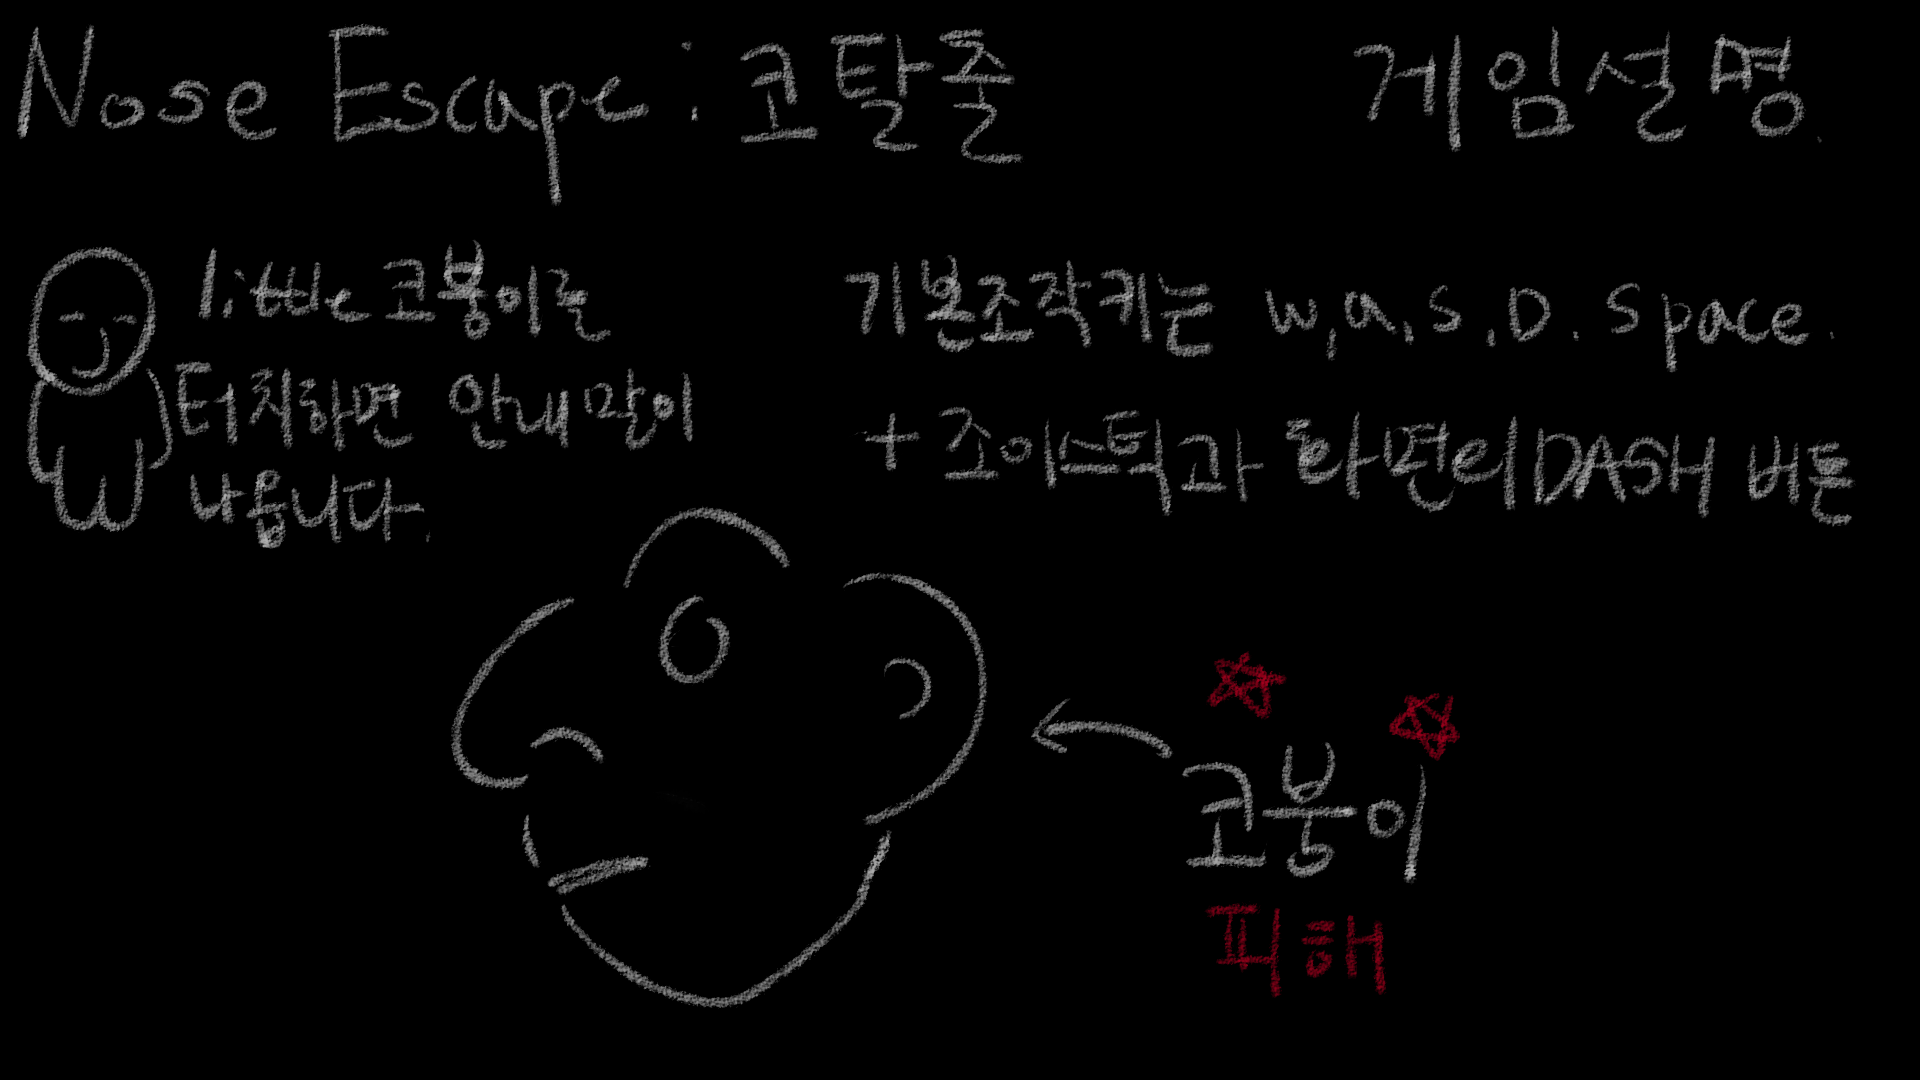 Nose Escape : 코탈출
게임설명.
little 코봉이를
터치하면 안내말이
나옵니다.
기본조작키는 w,a,s,D. space.
+ 조이스틱과 화면의 DASH 버튼
코봉이
피해